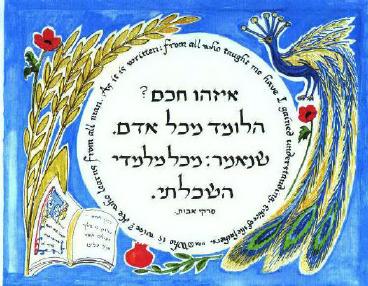 איזהו חכם?
הלומד מכל אדם.
שנאמר: מכל מלמדי
השכלתי.
פרקי אבות.
Who is wise? He who learns from all man. As it is written: from all who taught me have I gained understanding.